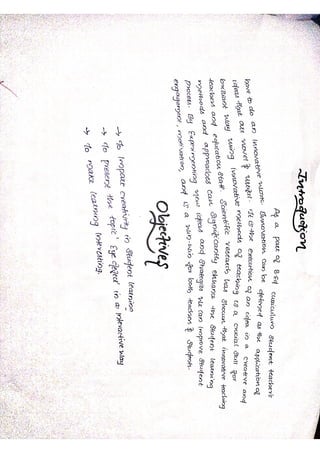 Introduction
As a part of B.Ed curriculum student teachers
have to do an innovative work. Innovation can be defined as the application of
ideas that are novel & useful. It is the creation of an idea in a creative and
brilliant way using innovative methods of teaching is a crucial skill for
teachers and education staff. Scientific research has shown that innovative teaching
methods and approaches can significantly enhance the student learning
process. By experimenting new ideas and strategies we can improve student
engagement motivation, and is a win-win for both teachers & students.
Objectives
→ To inspire creativity in student learning
→ To present the topic " Eye defect in a interactive way
→ To make learning interesting.